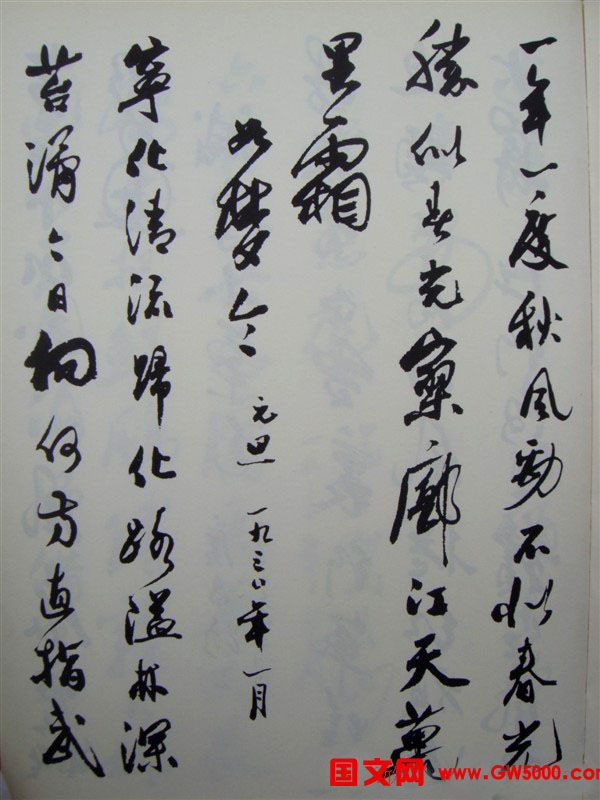 一年一度秋风劲不似春光
勝似春光寥廓江天萬
里霜
如梦令 元旦 一九三〇年一月
寧化清流歸化路隘林深
苔滑今日向何方直指武
国文网 www.GW5000.com